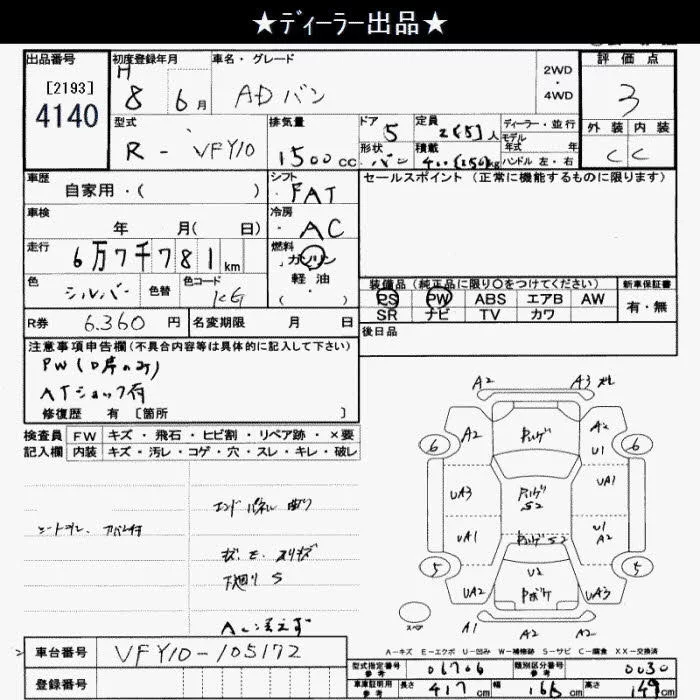 ★ディーラー出品★
出品番号 初度登録年月 車名・グレード 2WD・4WD 評価点
[2193]
4140
H 8 6月 ADバン 3
型式 排気量 ドア 定員 ディーラー・並行 外装 内装
R - VFY10 1500cc 5 2(5)人 モデル年式 年 C C
形状 積載 ハンドル 左・右
バン 400(250)kg
車歴 シフト セールスポイント (正常に機能するものに限ります)
自家用・( ) FAT
車検 冷房
年 月( 日) AC
走行 燃料
6万7千781km ガソリン
軽油
・( )
色 色替 色コード
シルバー KG
装備品 (純正品に限り○をつけてください) 新車保証書
PS PW ABS エアB AW 有・無
SR ナビ TV カワ
R券 6.360円 名変期限 月 日 後日品
注意事項申告欄 (不具合内容等は具体的に記入して下さい)
ATショック有
修復歴 有 [箇所 ]
検査員 FW キズ・飛石・ヒビ割・リペア跡・×要
記入欄 内装 キズ・汚レ・コゲ・穴・スレ・キレ・破レ
エンドパネル 曲り
下廻り S
A2 A3
A2 A2
6 6
U1
UA3 UA1
S2
UA1 U1
A2
S2
5 5
U2
UA2 UA3
スペア A1 A2 A2
A-キズ E-エクボ U-凹み W-補修跡 S-サビ C-腐食 XX-交換済
車台番号 VFY10-105172
登録番号
型式指定番号 参考 06706 類別区分番号 参考 0030
車庫証明用 参考 長さ 417cm 幅 166cm 高さ 149cm